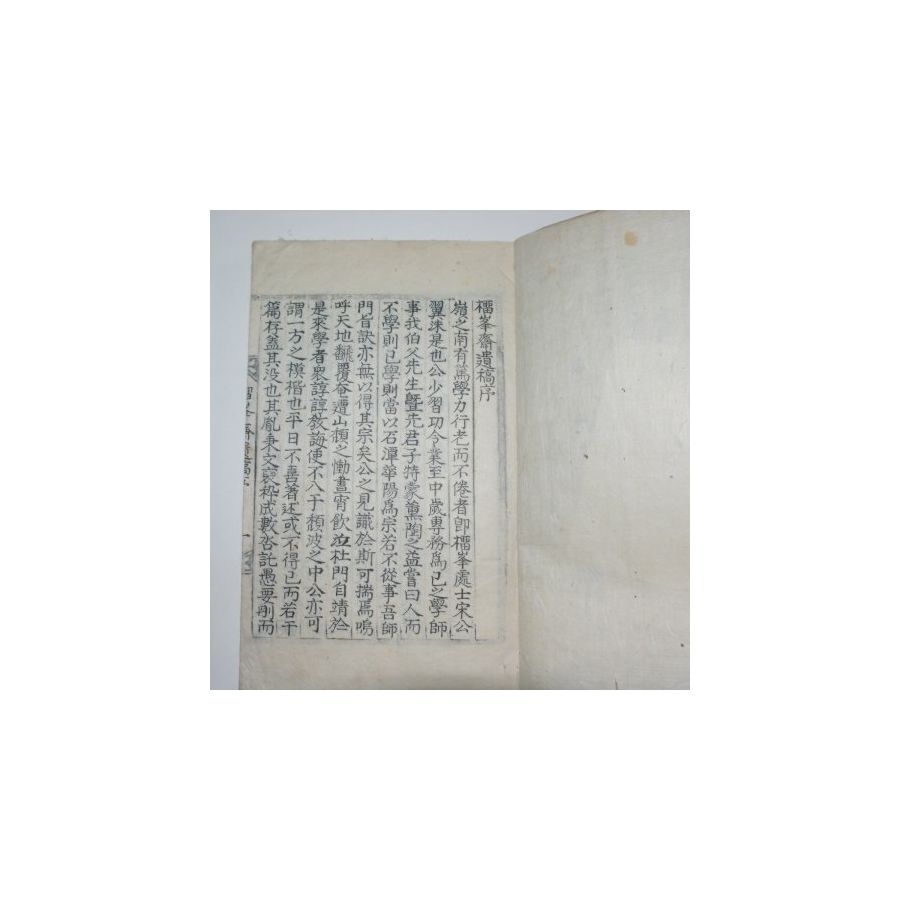 橊峯齋遺稿序
嶺之南有篤學力行老而不倦者卽橊峯處士宋公
翼洙是也公少習功令業至中歲專務爲己之學師
事我伯父先生曁先君子特蒙薰陶之益嘗曰人而
不學則已學則當以石潭華陽爲宗若不從事吾師
門旨訣亦無以得其宗矣公之見識於斯可揣焉嗚
呼天地飜覆奄遭山頹之慟晝宵飮泣杜門自靖於
是來學者衆諄諄敎誨使不入于頹波之中公亦可
謂一方之模楷也平日不善著述或不得已而若干
篇存盖其沒也其胤秉文裒粹成數呇託愚要刪而